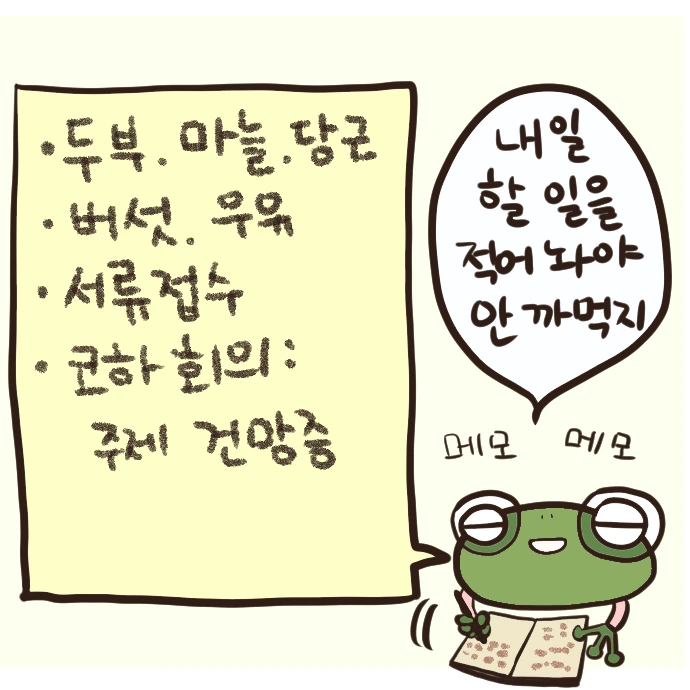 · 두부. 마늘. 당근
· 버섯. 우유
· 서류접수
· 코하 회의:
주제 건망증
내일
할 일을
적어 놔야
안 까먹지
메모 메모